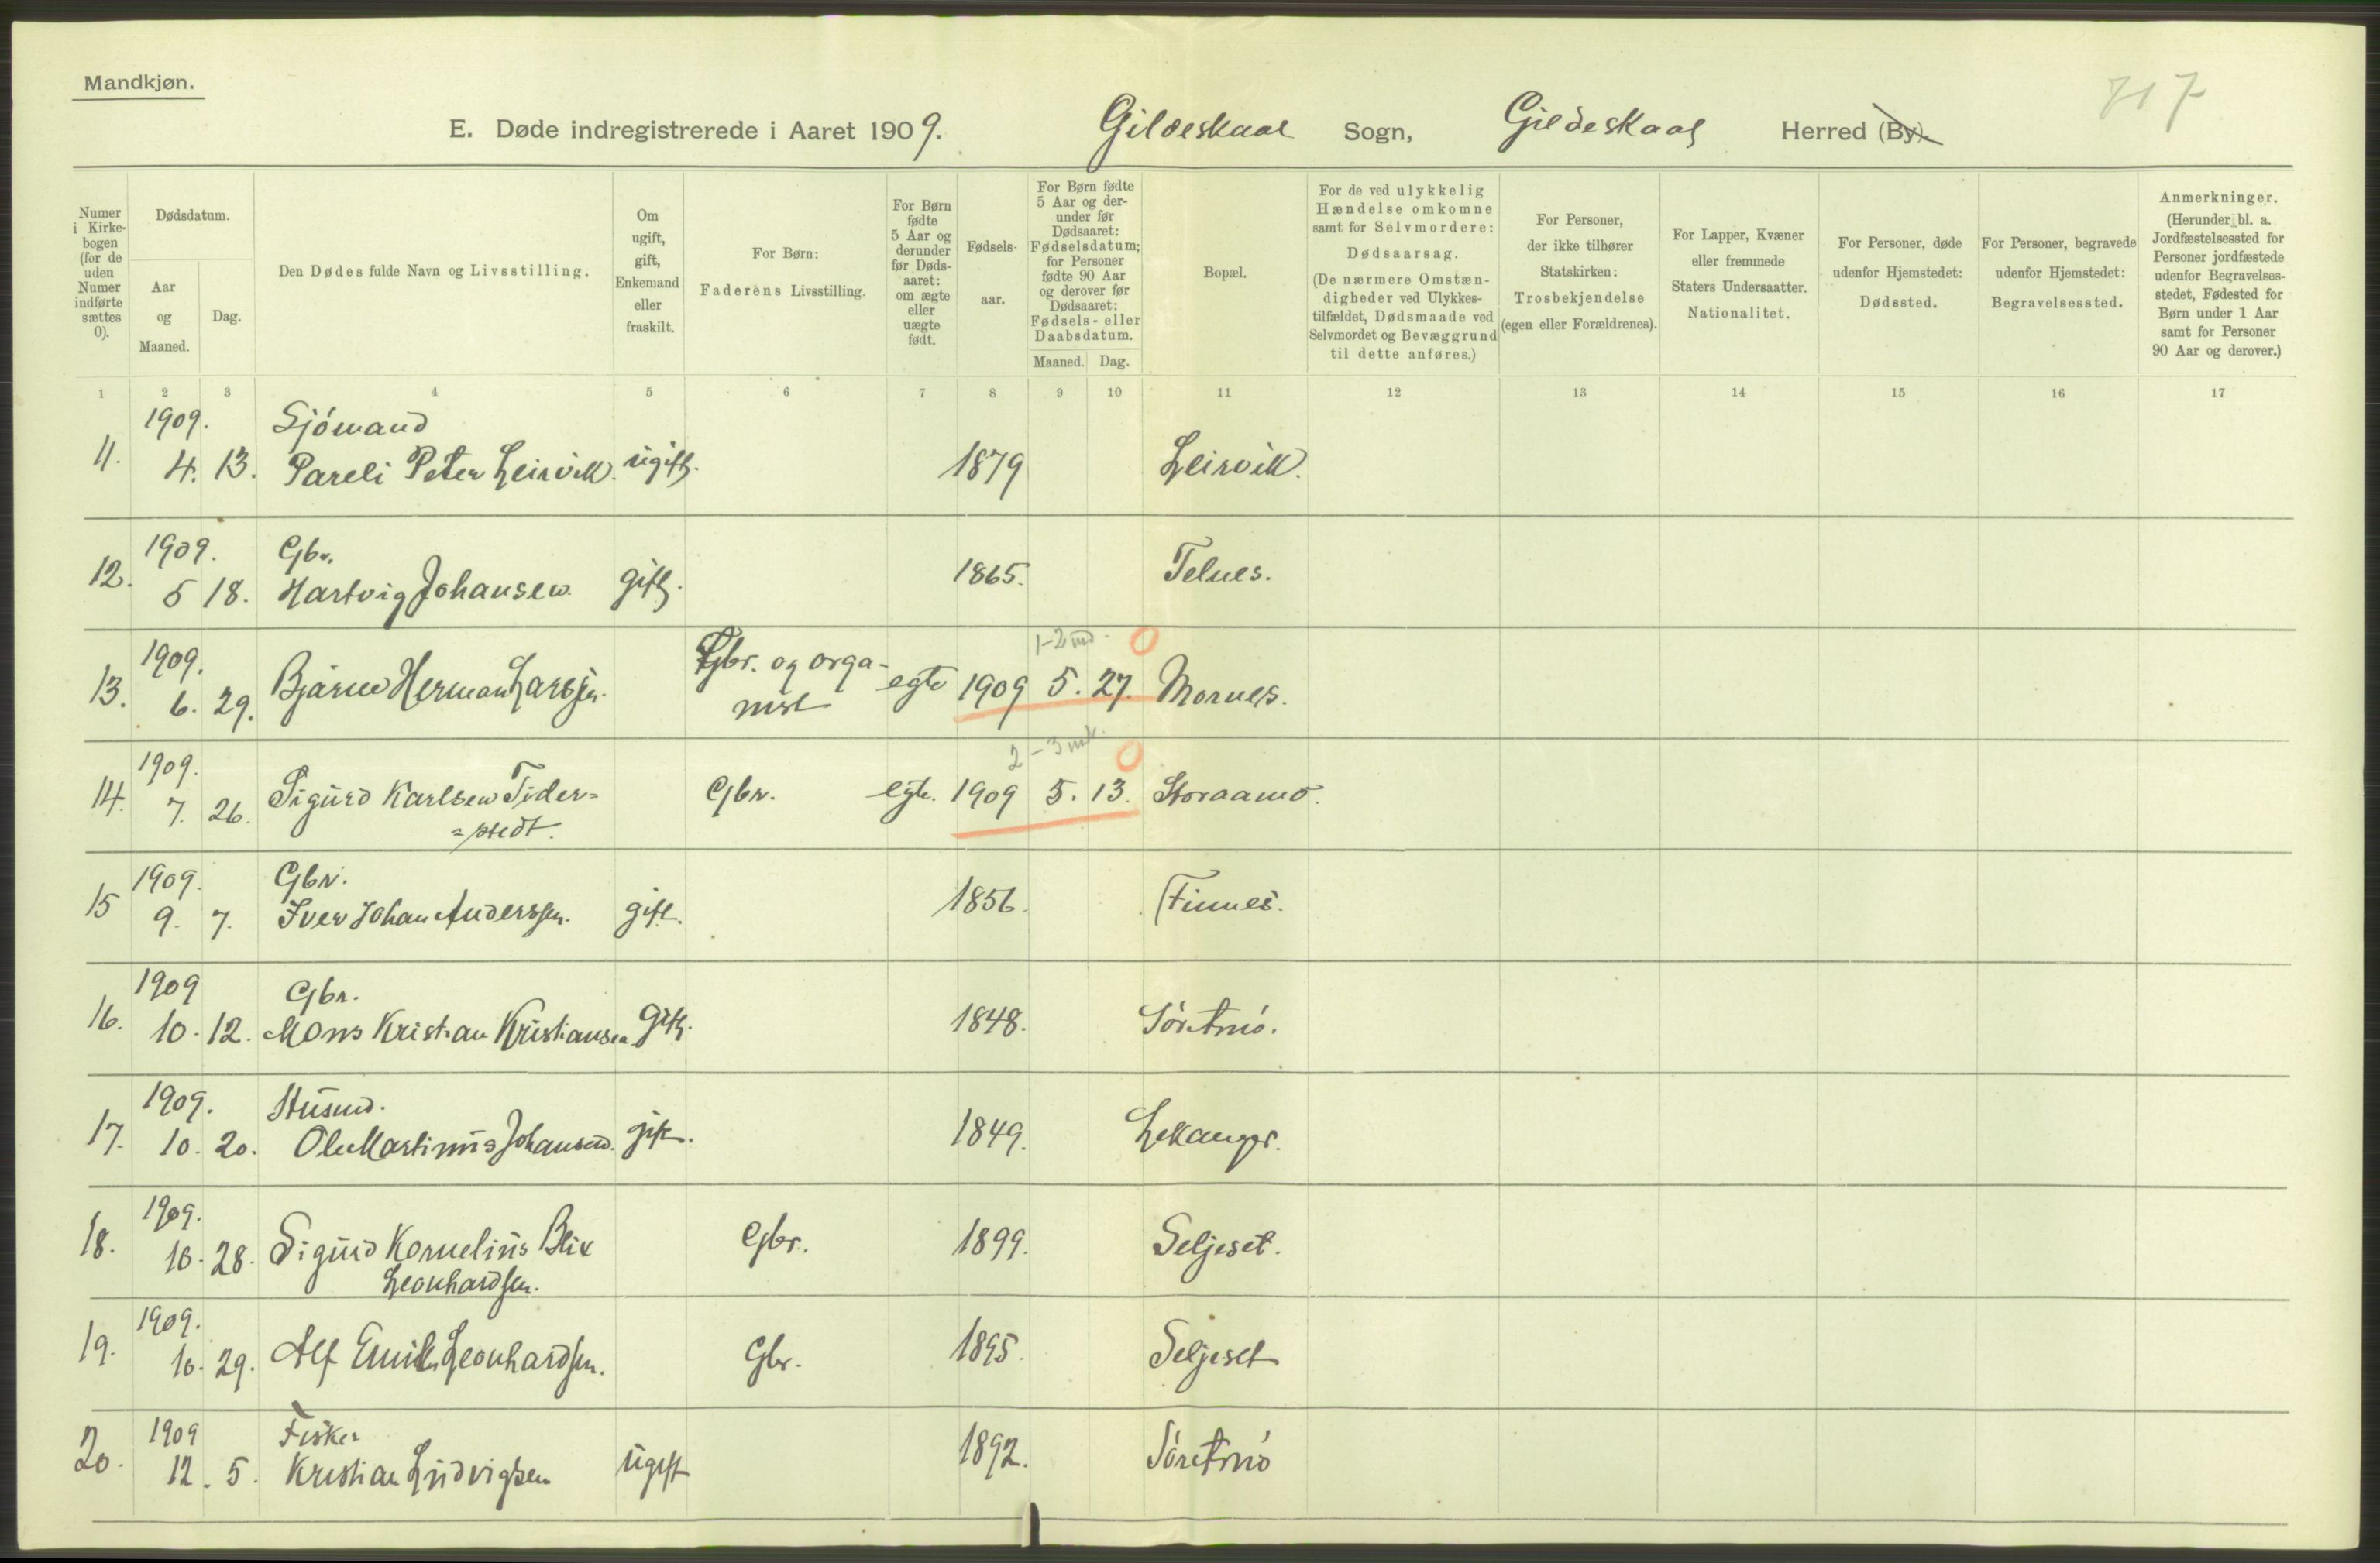 Mandkjøn.
717
E. Døde indregistrerede i Aaret 1909. Gildeskaal Sogn, Gildeskaal Herred (By).
Numer
i Kirke-
bogen
(for de
uden
Numer
indførte
sættes
0).
Dødsdatum.
Aar
og
Maaned.
Dag.
Den Dødes fulde Navn og Livsstilling.
Om
ugift,
gift,
Enkemand
eller
fraskilt.
For Børn:
Faderens Livsstilling.
For Børn
fødte
5 Aar og
derunder
før Døds-
aaret:
om ægte
eller
uægte
født.
Fødsels-
aar.
For Børn fødte
5 Aar og der-
under før
Dødsaaret:
Fødselsdatum;
for Personer
fødte 90 Aar
og derover før
Dødsaaret:
Fødsels- eller
Daabsdatum.
Maaned. Dag.
Bopæl.
For de ved ulykkelig
Hændelse omkomne
samt for Selvmordere:
Dødsaarsag.
(De nærmere Omstæn-
digheder ved Ulykkes-
tilfældet, Dødsmaade ved
Selvmordet og Bevæggrund
til dette anføres.)
For Personer,
der ikke tilhører
Statskirken:
Trosbekjendelse
(egen eller Forældrenes).
For Lapper, Kvæner
eller fremmede
Staters Undersaatter.
Nationalitet.
For Personer, døde
udenfor Hjemstedet:
Dødssted.
For Personer, begravede
udenfor Hjemstedet:
Begravelsessted.
Anmerkninger.
(Herunder bl. a.
Jordfæstelsessted for
Personer jordfæstede
udenfor Begravelses-
stedet, Fødested for
Børn under 1 Aar
samt for Personer
90 Aar og derover.)
1 2 3 4 5 6 7 8 9 10 11 12 13 14 15 16 17
1909. Sjómand
11. 4. 13. Pareli Peter Leirvik. ugift. 1879 Leirvik.
1909. Gbr.
12. 5 18. Hartvig Johansen gift. 1865. Telnes.
1909. Gbr. og orga- 1-2 md. 0
13. 6. 29. Bjarne Herman Larssen. nist egte 1909 5. 27. Mornes.
1909. 2-3 md. 0
14. 7. 26. Sigurd Karlsen Tider= Gbr. egte. 1909 5. 13. Storaamo.
=stedt.
1909. Gbr.
15 9. 7. Iver Johan Anderssen. gift. 1856. Finnes.
1909 Gbr.
16. 10. 12. Mons Kristian Kristiansen gift. 1848. Sóretnó.
1909. Husmd.
17. 10. 20. Ole Martinus Johansen. gift. 1849. Lekanger.
1909.
18. 10. 28. Sigurd Kornelius Blix Gbr. 1899. Seljeset.
Leonhardsen.
1909.
19. 10. 29. Alf Emil Leonhardsen. Gbr. 1895. Seljeset
1909 Fisker
20. 12. 5. Kristian Ludvigsen ugift 1892. Sóretnó